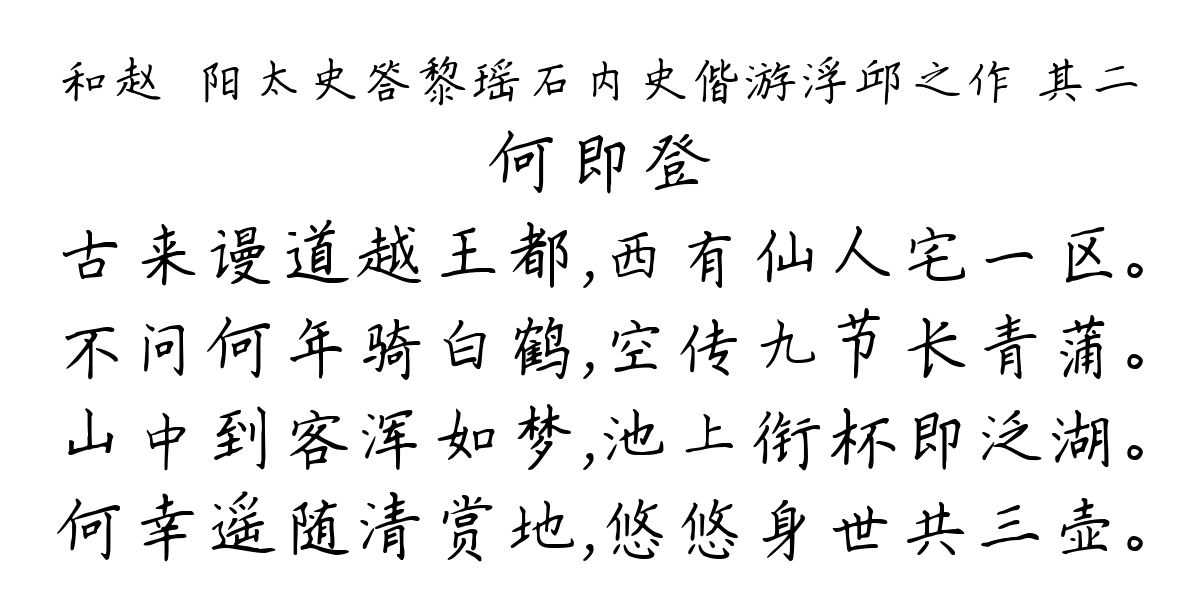 和赵 阳太史答黎瑶石内史偕游浮邱之作 其二
何即登
古来谩道越王都,西有仙人宅一区。
不问何年骑白鹤,空传九节长青蒲。
山中到客浑如梦,池上衔杯即泛湖。
何幸遥随清赏地,悠悠身世共三壶。